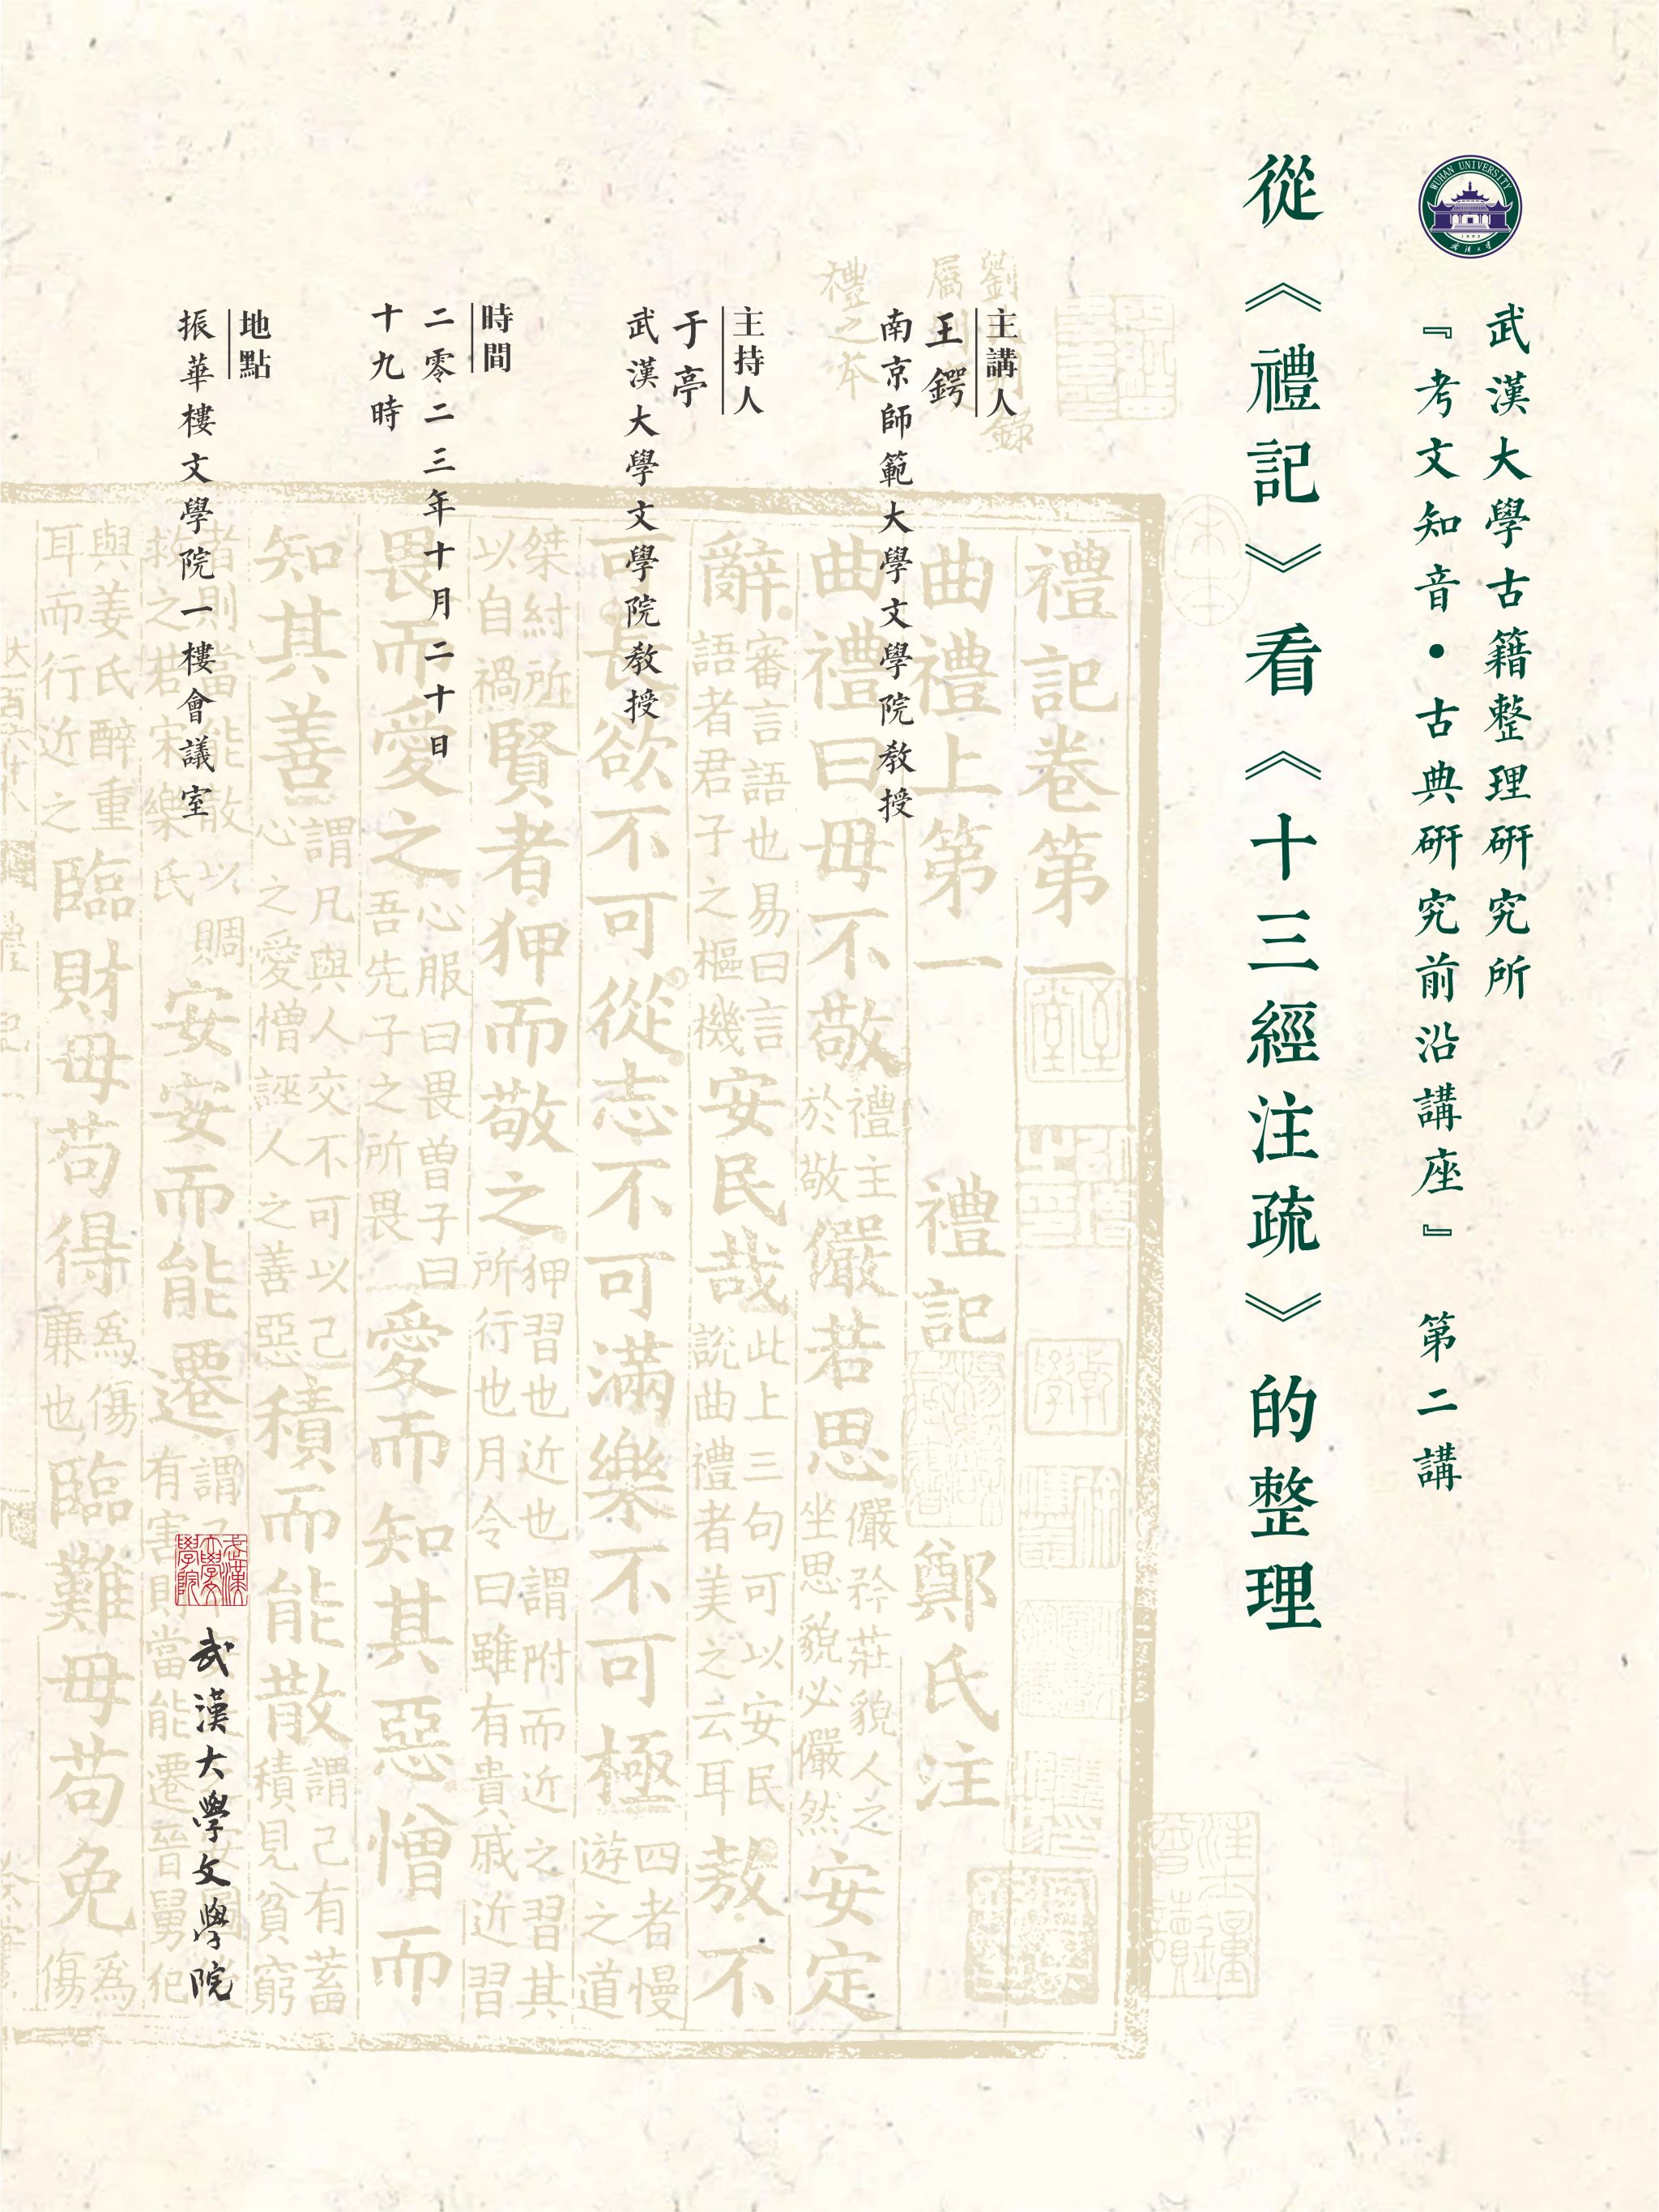 WUHAN UNIVERSITY
1893
武漢大學古籍整理研究所
『考文知音·古典研究前沿講座』 第二講
從《禮記》看《十三經注疏》的整理
主講人
王鍔
南京師範大學文學院教授
主持人
于亭
武漢大學文學院教授
時間
二零二三年十月二十日
十九時
地點
振華樓文學院一樓會議室
武漢大學文學院
武漢大學文學院
禮記卷第一
曲禮上第一 禮記 鄭氏注
曲禮曰毋不敬禮主於敬儼若思儼矜莊貌人之坐思貌必儼然安定
辭審言語也易曰言語者君子之樞機安民哉此上三句可以安民說曲禮者美之云耳敖不
可長欲不可從志不可滿樂不可極四者慢遊之道
桀紂所以自禍賢者狎而敬之狎習也近也謂附而近之習其所行也月令曰雖有貴戚近習
畏而愛之心服曰畏曾子曰吾先子之所畏愛而知其惡憎而
知其善謂凡與人交不可以己心之愛憎誣人之善惡積而能散謂己有蓄積見貧窮
者則當能散以賙救之若宋樂氏安安而能遷謂己今安此之安圖後有害則當能遷晉舅犯
與姜氏醉重耳而行近之臨財毋苟得為傷廉也臨難毋苟免為傷